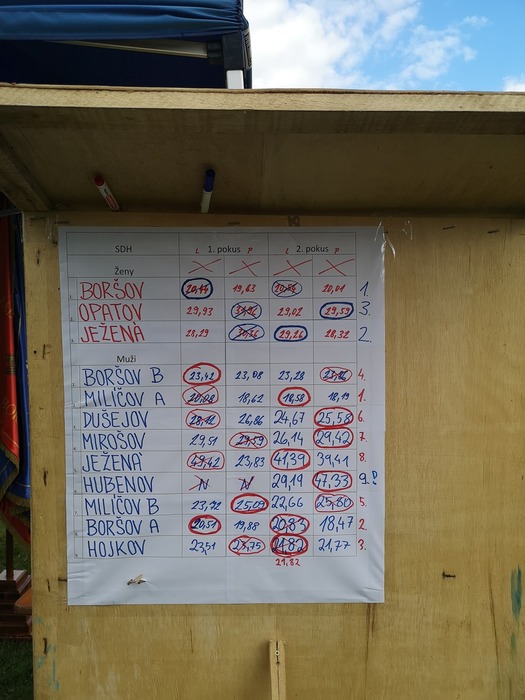 SDH L 1. pokus P L 2. pokus P
Ženy
BORŠOV 20,14 19,63 20,01 1.
OPATOV 29,93 29,02 29,59 3.
JEŽENÁ 28,29 29,26 28,32 2.
Muži
BORŠOV B 23,42 23,08 23,28 4.
MILÍČOV A 20,08 18,62 18,58 18,19 1.
DUŠEJOV 28,12 26,86 24,67 25,58 6.
MIROŠOV 29,51 29,59 26,14 29,42 7.
JEŽENÁ 49,42 23,83 41,39 39,41 8.
HUBENOV N N 29,19 47,33 9.
MILÍČOV B 23,72 25,09 22,66 25,80 5.
BORŠOV A 20,51 19,88 20,83 18,47 2.
HOJKOV 23,51 23,75 21,82 21,77 3.
21,82